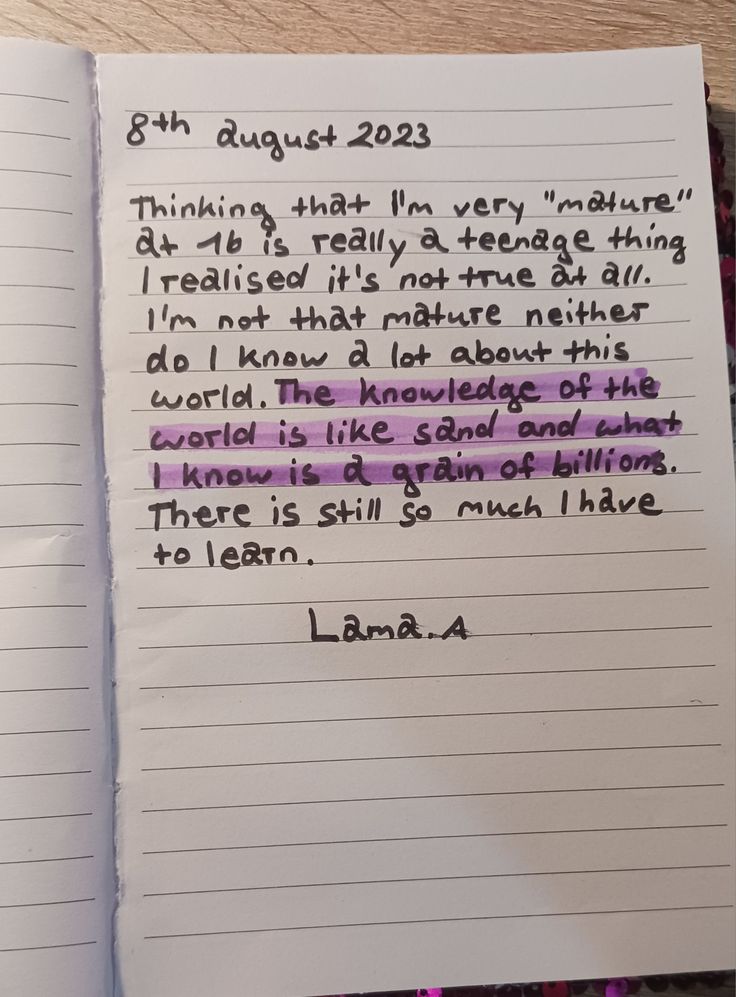 8th august 2023
Thinking that I'm very "mature"
at 16 is really a teenage thing
I realised it's not true at all.
I'm not that mature neither
do I know a lot about this
world. The knowledge of the
world is like sand and what
I know is a grain of billions.
There is still so much I have
to learn.
Lama. A